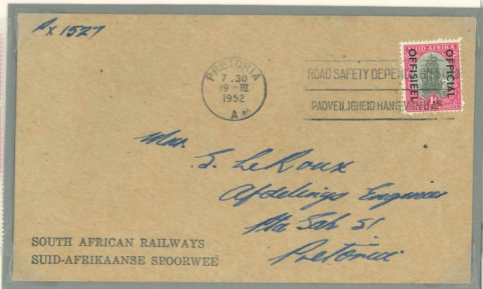 Px 1527
PRETORIA
7.30
19-III
1952
A
ROAD SAFETY DEPENDS
PADVEILIGHEID HANG VAN U AF
SUID-AFRIKA
OFFISIEEL
OFFICIAL
Mnr.
S. LeRoux
Afdelings Engineer
Sak 51
Pretoria
SOUTH AFRICAN RAILWAYS
SUID-AFRIKAANSE SPOORWEË